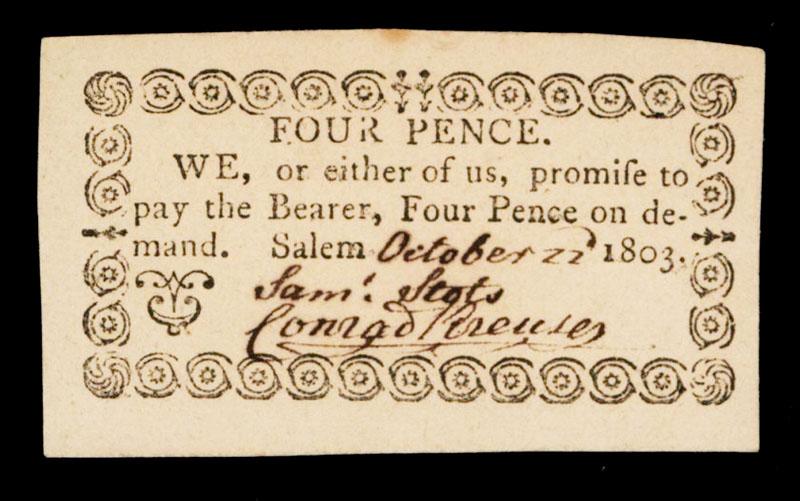 FOUR PENCE.
WE, or either of us, promiſe to
pay the Bearer, Four Pence on de-
mand. Salem October 22d 1803.
Saml. Stots
Conrad Kreuser